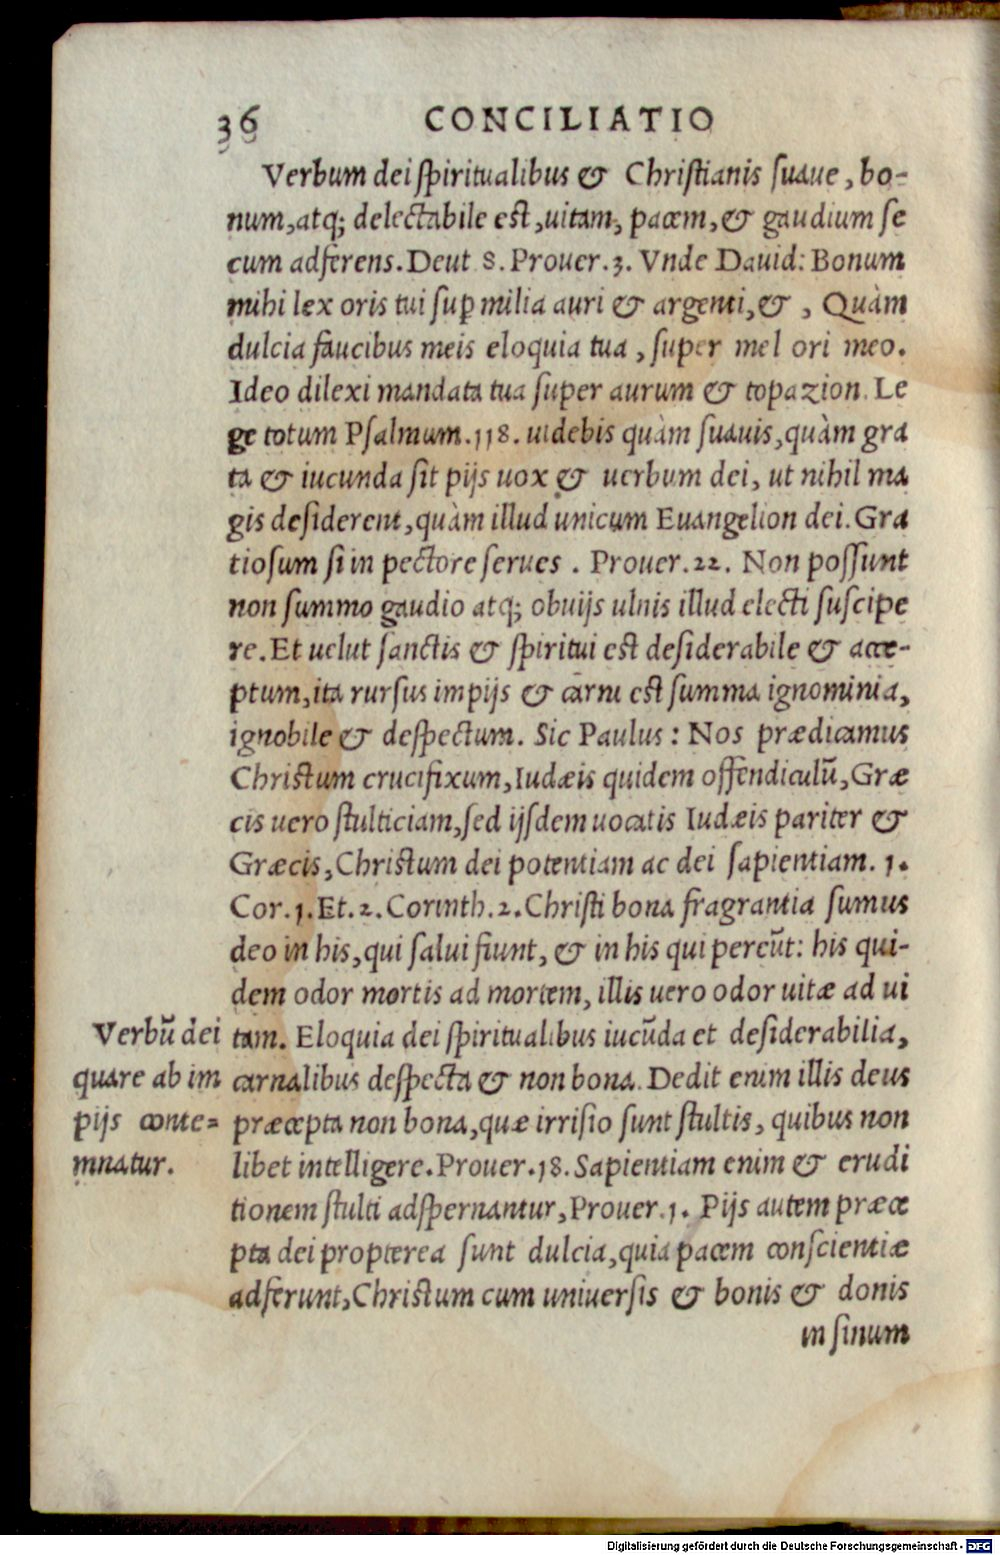 36 CONCILIATIO
Verbum dei spiritualibus & Christianis suaue, bo-
num, atq; delectabile est, uitam, pacem, & gaudium se
cum adferens. Deut 8. Prouer. 3. Vnde Dauid: Bonum
mihi lex oris tui suꝑ milia auri & argenti, &, Quàm
dulcia faucibus meis eloquia tua, super mel ori meo.
Ideo dilexi mandata tua super aurum & topazion. Le
ge totum Psalmum. 118. uidebis quàm suauis, quàm gra
ta & iucunda sit pijs uox & uerbum dei, ut nihil ma
gis desiderent, quàm illud unicum Euangelion dei. Gra
tiosum si in pectore serues. Prouer. 22. Non possunt
non summo gaudio atq; obuijs ulnis illud electi suscipe
re. Et uelut sanctis & spiritui est desiderabile & acce-
ptum, ita rursus impijs & carni est summa ignominia,
ignobile & despectum. Sic Paulus: Nos prædicamus
Christum crucifixum, Iudæis quidem offendiculū, Græ
cis uero stulticiam, sed ijsdem uocatis Iudæis pariter &
Græcis, Christum dei potentiam ac dei sapientiam. 1.
Cor. 1. Et. 2. Corinth. 2. Christi bona fragrantia sumus
deo in his, qui salui fiunt, & in his qui pereūt: his qui-
dem odor mortis ad mortem, illis uero odor uitæ ad ui
tam. Eloquia dei spiritualibus iucūda et desiderabilia,
carnalibus despecta & non bona. Dedit enim illis deus
præcepta non bona, quæ irrisio sunt stultis, quibus non
libet intelligere. Prouer. 18. Sapientiam enim & erudi
tionem stulti adspernantur, Prouer. 1. Pijs autem præce
pta dei propterea sunt dulcia, quia pacem conscientiæ
adferunt, Christum cum uniuersis & bonis & donis
in sinum
Verbū dei
quare ab im
pijs conte=
mnatur.
Digitalisierung gefördert durch die Deutsche Forschungsgemeinschaft - DFG